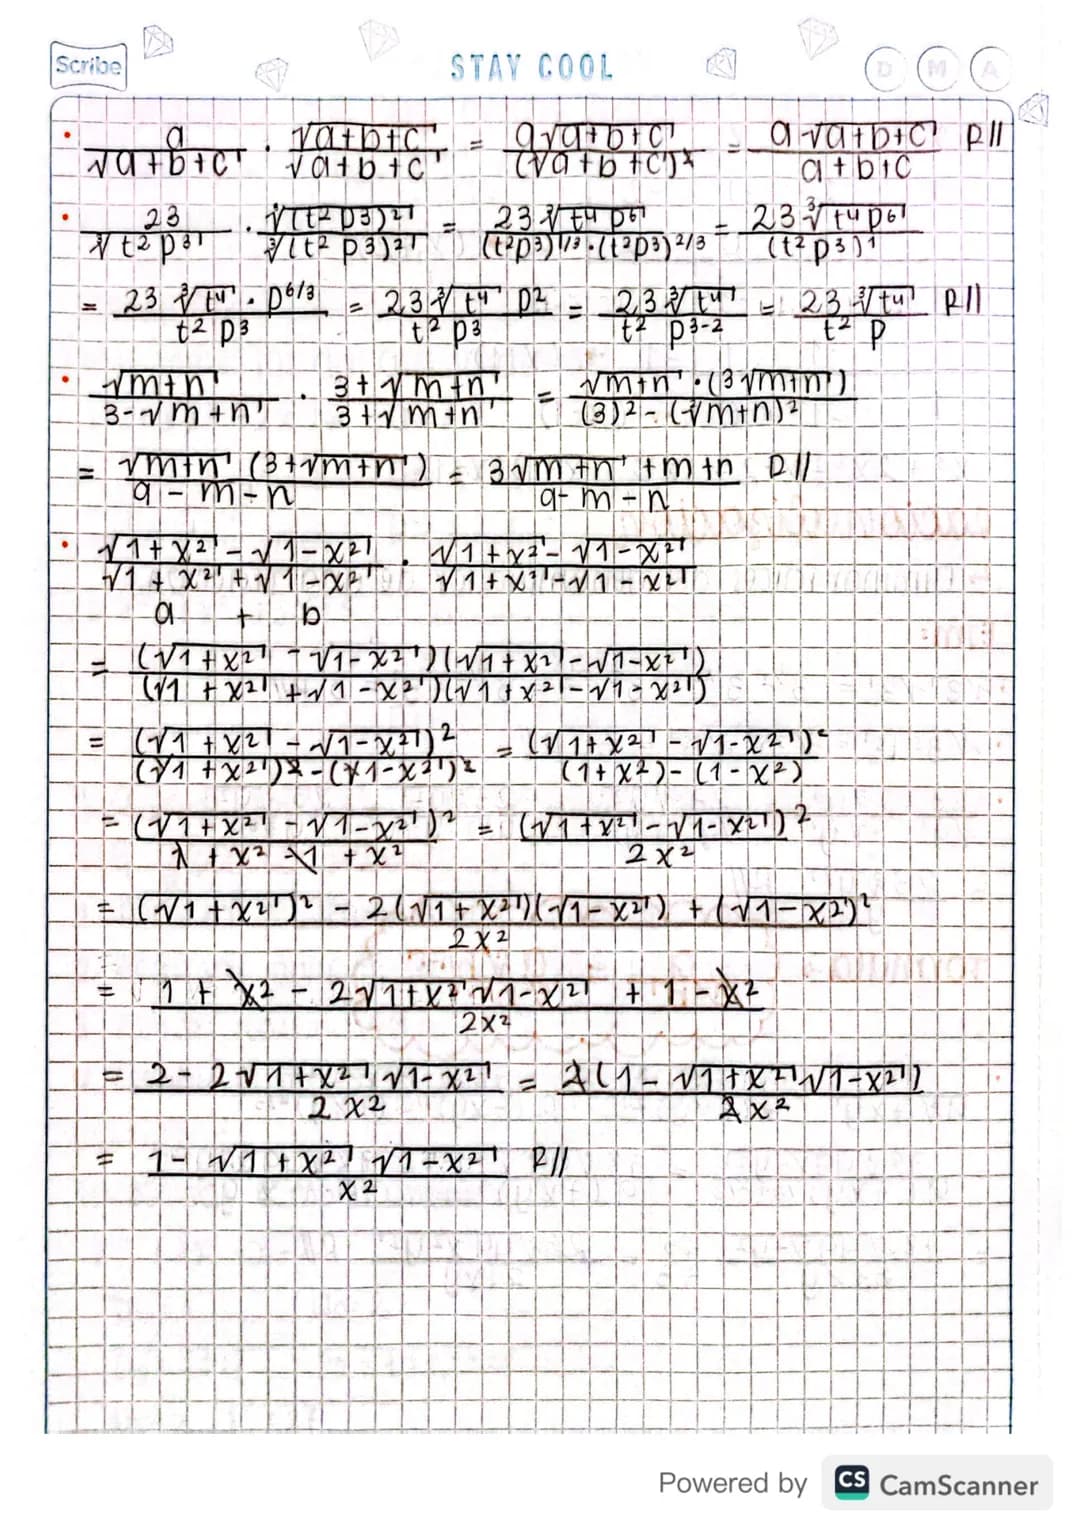 Scribe STAY COOL D M A
• a/√(a+b+c) · √(a+b+c)/√(a+b+c) = a√(a+b+c)/(√(a+b+c))² = a√(a+b+c)/(a+b+c) R//
• 23/∛(t² p³) · ∛((t² p³)²)/∛((t² p³)²) = 23 ∛(t⁴ p⁶)/((t²p³)^1/3 · (t²p³)^2/3) = 23 ∛(t⁴ p⁶)/(t² p³)¹
= 23 ∛(t⁴) · p^6/3/(t² p³) = 23 ∛(t⁴) p²/(t² p³) = 23 ∛(t⁴)/(t² p^3-2) = 23 ∛(t⁴)/(t² p) R//
• √(m+n)/(3-√(m+n)) · (3+√(m+n))/(3+√(m+n)) = √(m+n) · (3√(m+n))/((3)² - (√m+n)²)
= √(m+n) (3+√(m+n))/(9-m-n) = (3√(m+n) + m+n)/(9-m-n) R//
• (√(1+x²) - √(1-x²))/(√(1+x²) + √(1-x²)) · (√(1+x²) - √(1-x²))/(√(1+x²) - √(1-x²))
a + b
= (√(1+x²) - √(1-x²))(√(1+x²) - √(1-x²))/((√(1+x²) + √(1-x²))(√(1+x²) - √(1-x²)))
= (√(1+x²) - √(1-x²))²/((√(1+x²))² - (√(1-x²))²) = (√(1+x²) - √(1-x²))²/((1+x²) - (1-x²))
= (√(1+x²) - √(1-x²))²/(1+x²-1+x²) = (√(1+x²) - √(1-x²))²/(2x²)
= ((√(1+x²))² - 2(√(1+x²))(√(1-x²)) + (√(1-x²))²)/(2x²)
= (1+x² - 2√(1+x²)√(1-x²) + 1-x²)/(2x²)
= (2 - 2√(1+x²)√(1-x²))/(2x²) = 2(1-√(1+x²)√(1-x²))/(2x²)
= (1-√(1+x²)√(1-x²))/x² R//
Powered by CS CamScanner